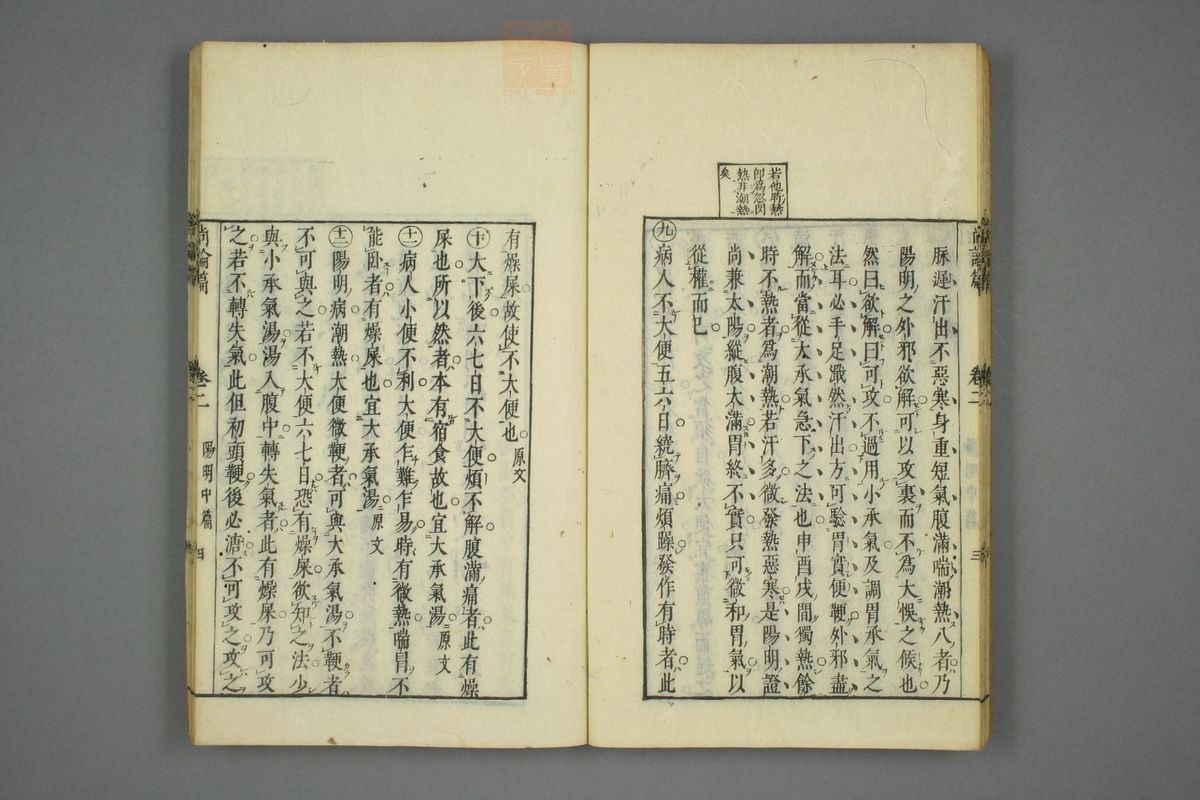 若他時熱
卽爲忽閃
熱非潮熱
矣
脉遲汗出不惡寒身重短氣腹滿喘潮熱八者乃
陽明之外邪欲解可以攻裏而不爲大悞之候也
然曰欲解曰可攻不過用小承氣及調胃承氣之
法耳必手足濈然汗出方可驗胃實便鞕外邪盡
解而當從大承氣急下之法也申酉戌間獨熱餘
時不熱者爲潮熱若汗多微發熱惡寒是陽明證
尚兼太陽縱腹大滿胃終不實只可微和胃氣以
從權而已
九病人不大便五六日繞臍痛煩躁發作有時者此
尚論篇 卷二 陽明中篇 三
有燥屎故使不大便也 原文
十大下後六七日不大便煩不解腹滿痛者此有燥
屎也所以然者本有宿食故也宜大承氣湯 原文
十一病人小便不利大便乍難乍易時有微熱喘冒不
能卧者有燥屎也宜大承氣湯 原文
十二陽明病潮熱大便微鞕者可與大承氣湯不鞕者
不可與之若不大便六七日恐有燥屎欲知之法少
與小承氣湯湯入腹中轉失氣者此有燥屎乃可攻
之若不轉失氣此但初頭鞕後必溏不可攻之攻之
尚論篇 卷二 陽明中篇 四
zyoj.oas.cn